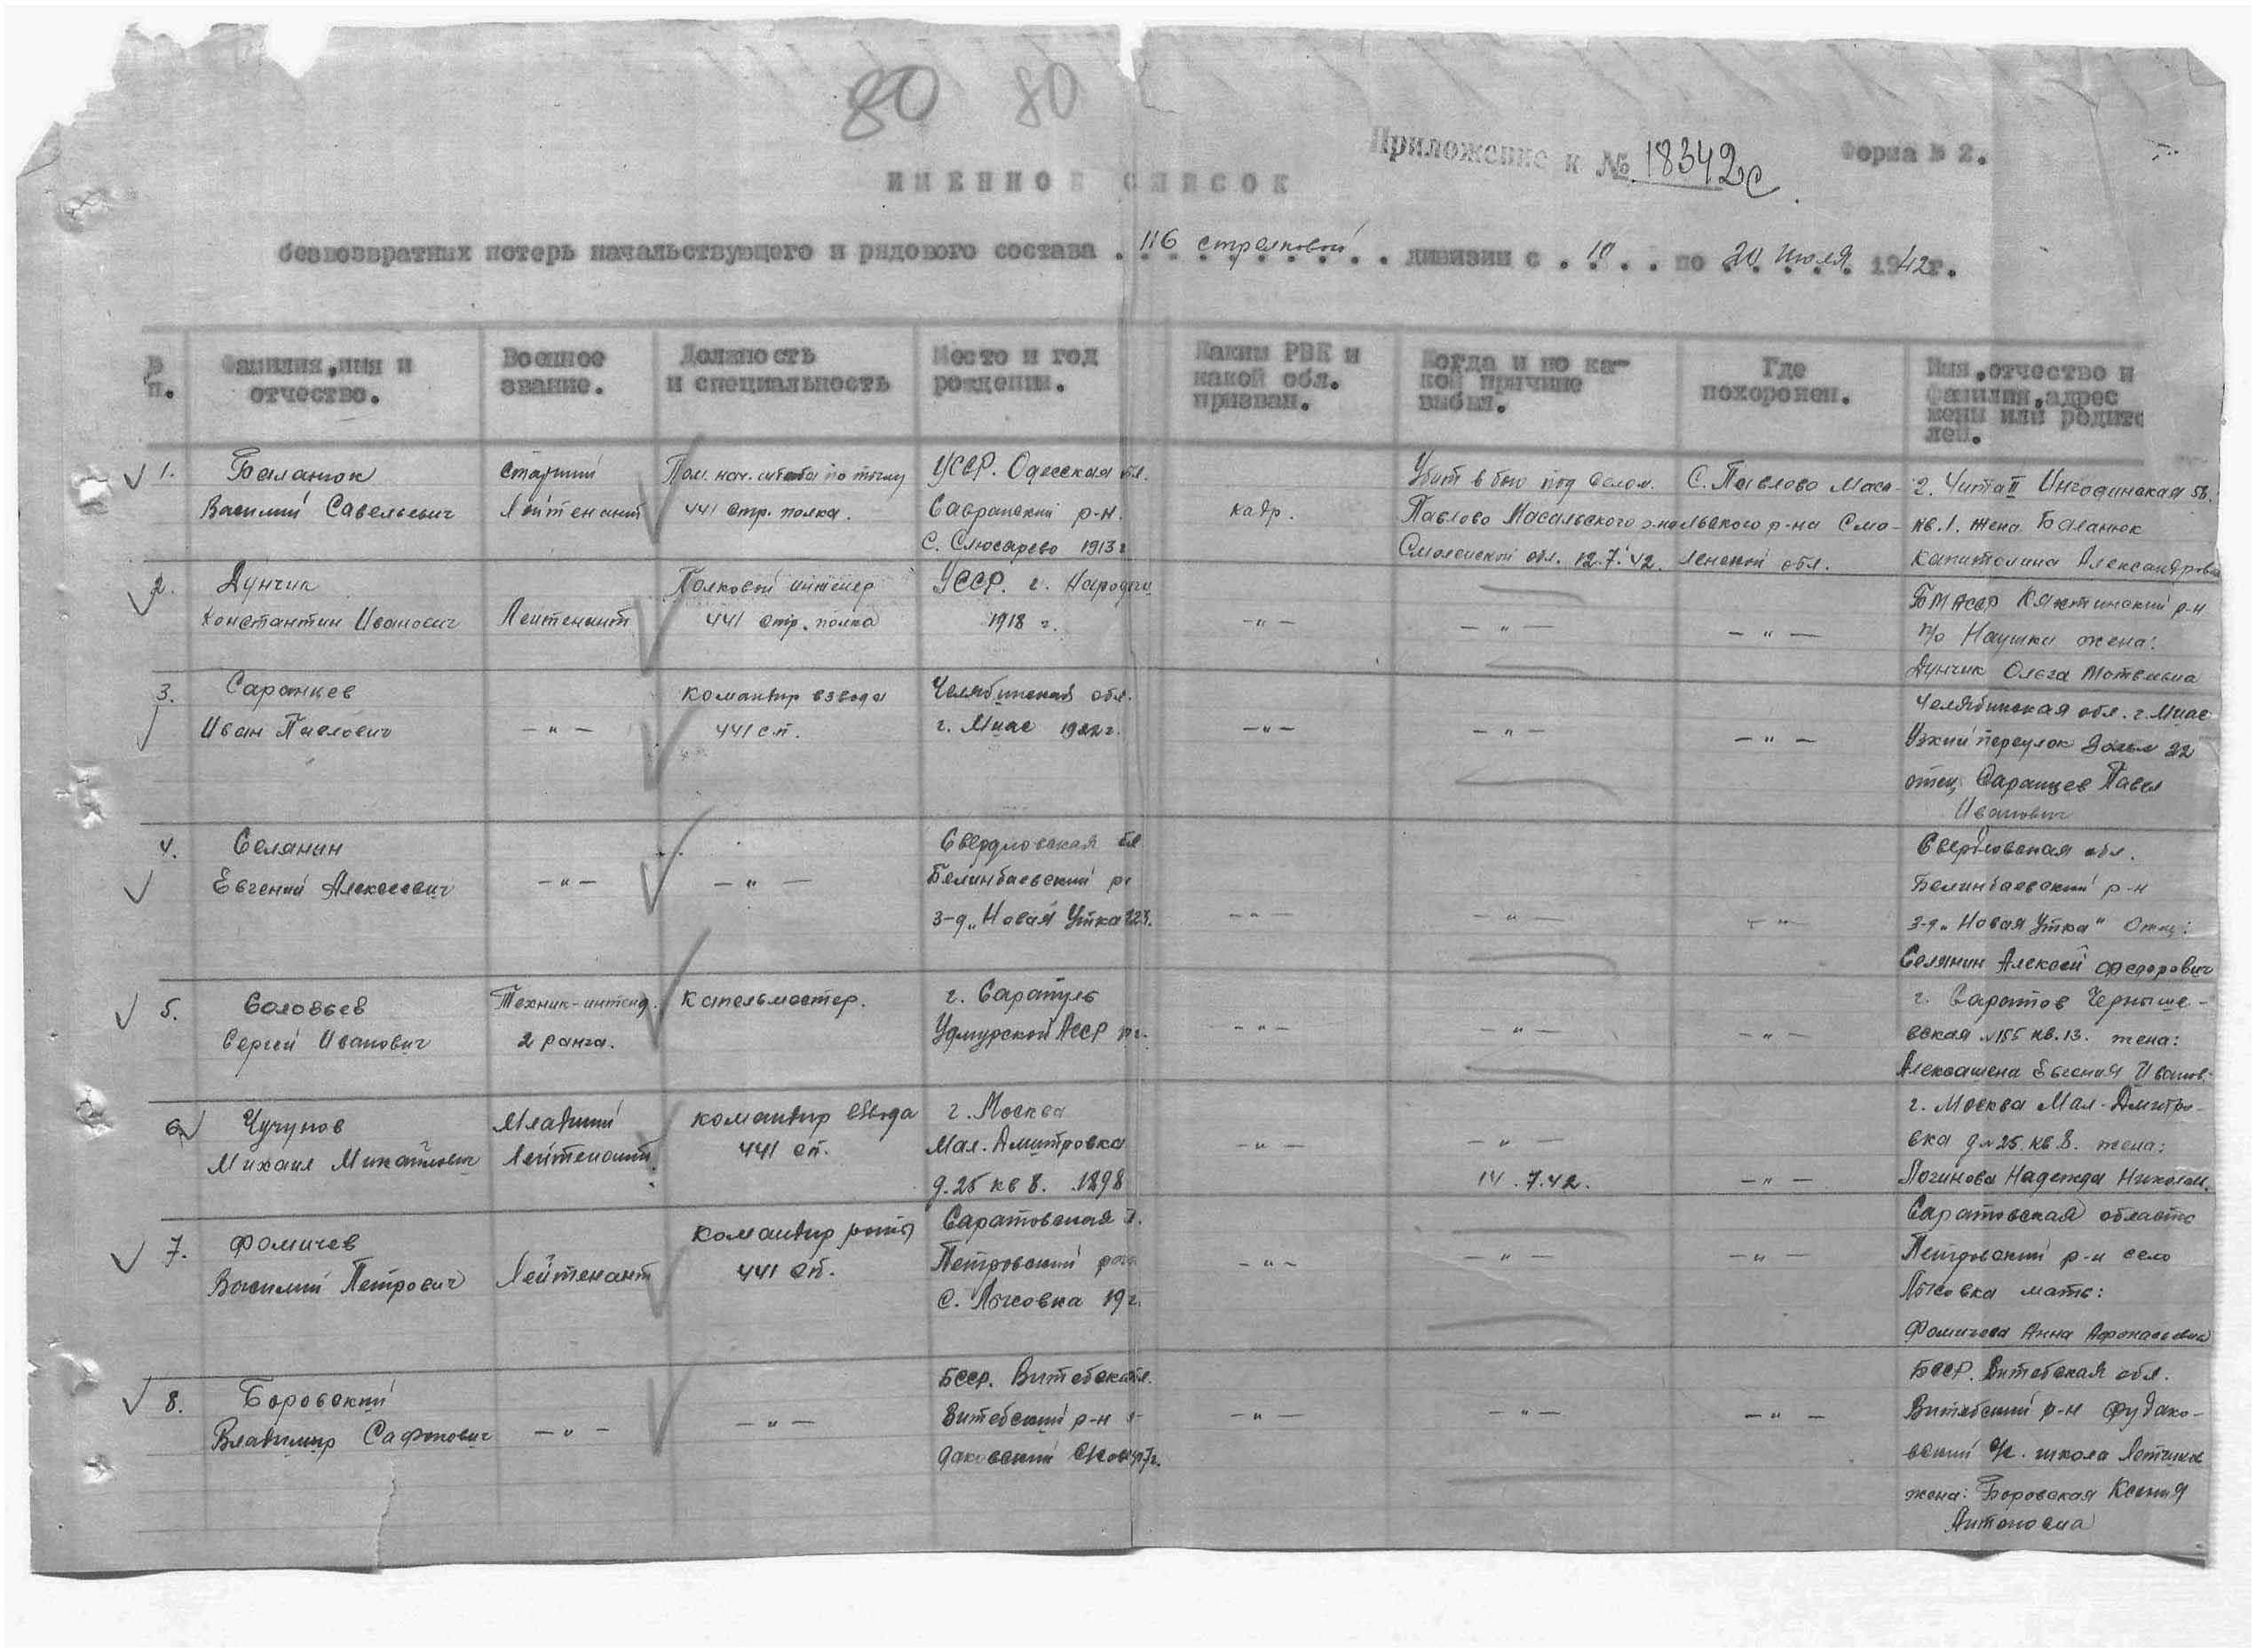 80 80
Приложение к № 18342с.
Форма № 2.
ИМЕННОЙ СПИСОК
безвозвратных потерь начальствующего и рядового состава . 116 стрелковой . . дивизии с . 10 . . по 20 июля 1942г.
№ п.
Фамилия, имя и отчество.
Военное звание.
Должность и специальность
Место и год рождения.
Каким РВК и какой обл. призван.
Когда и по ка-
кой причине
выбыл.
Где похоронен.
Имя, отчество и
фамилия, адрес
жены или родите
лей.
1.
Баланюк
Василий Савельевич
Старший
Лейтенант
Пом. нач. штаба по тылу
441 стр. полка.
УССР. Одесская обл.
Савранский р-н.
С. Слюсарево 1913г
кадр.
Убит в бою под селом.
Павлово Масальского р-на
Смоленской обл. 12.7.42.
С. Павлово Маса-
льского р-на Смо-
ленской обл.
г. Чита II Ингодинская 56.
кв. 1. жена Баланюк
Капитолина Александровна
2.
Дунчик
Константин Иванович
Лейтенант
Полковой инженер
441 стр. полка
УССР. г. Народичи
1918 г.
— " —
— " —
— " —
БМАССР Кяхтинский р-н
п/о Наушки жена:
Дунчик Ольга Матвеевна
3.
Саранцев
Иван Павлович
— " —
командир взвода
441 с.п.
Челябинская обл.
г. Миас 1922г.
— " —
— " —
— " —
Челябинская обл. г. Миас
Узкий переулок 22
отец Саранцев Павел
Иванович
4.
Селянин
Евгений Алексеевич
— " —
— " —
Свердловская
Белинбаевский р-
з-д "Новая Утка
— " —
— " —
— " —
Свердловская обл.
Белинбаевский р-н
з-д "Новая Утка" Отец:
Селянин Алексей Федорович
5.
Соловьев
Сергей Иванович
Техник-интенд.
2 ранга.
Капельместер.
г. Сарапуль
Удмурской АССР
— " —
— " —
— " —
г. Саратов Черныше-
вская №155 кв. 13. жена:
Алексашена Евгения Иванов.
6.
Чучунов
Михаил Михайлович
Младший
Лейтенант.
командир взвода
441 сп.
г. Москва
Мал. Дмитровка
д. 25 кв 8. 1898
— " —
— " —
14.7.42.
— " —
г. Москва Мал-Дмитро-
вка д №25 кв 8. жена:
Логинова Надежда Николаев.
7.
Фомичев
Василий Петрович
Лейтенант
командир роты
441 сп.
Саратовская
Петровский
с. Лысовка 19 г.
— " —
— " —
— " —
Саратовская область
Петровский р-н село
Лысовка мать:
Фомичева Анна Афонасьевна
8.
Боровский
Владимир Сафонович
— " —
— " —
БССР. Витебская
Витебский р-н
даковский
— " —
— " —
— " —
БССР. Витебская обл.
Витебский р-н Фудако-
вский с/с. школа
жена: Боровская Ксения
Антоновна